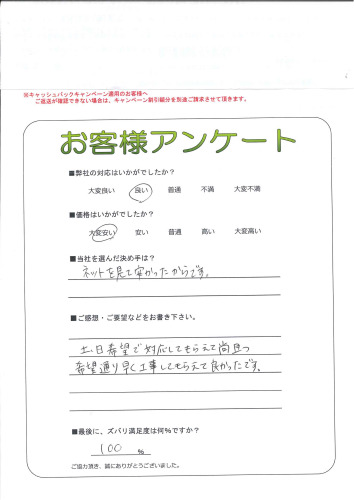 ※キャッシュバックキャンペーン適用のお客様へ
ご返送が確認できない場合は、キャンペーン割引額分を別途ご請求させて頂きます。
お客様アンケート
■弊社の対応はいかがでしたか？
大変良い 良い 普通 不満 大変不満
■価格はいかがでしたか？
大変安い 安い 普通 高い 大変高い
■当社を選んだ決め手は？
ネットを見て安かったからです。
■ご感想・ご要望などをお書き下さい。
土、日希望で対応してもらえて尚且つ
希望通り早く工事してもらえて良かったです。
■最後に、ズバリ満足度は何％ですか？
100 %
ご協力頂き、誠にありがとうございました。